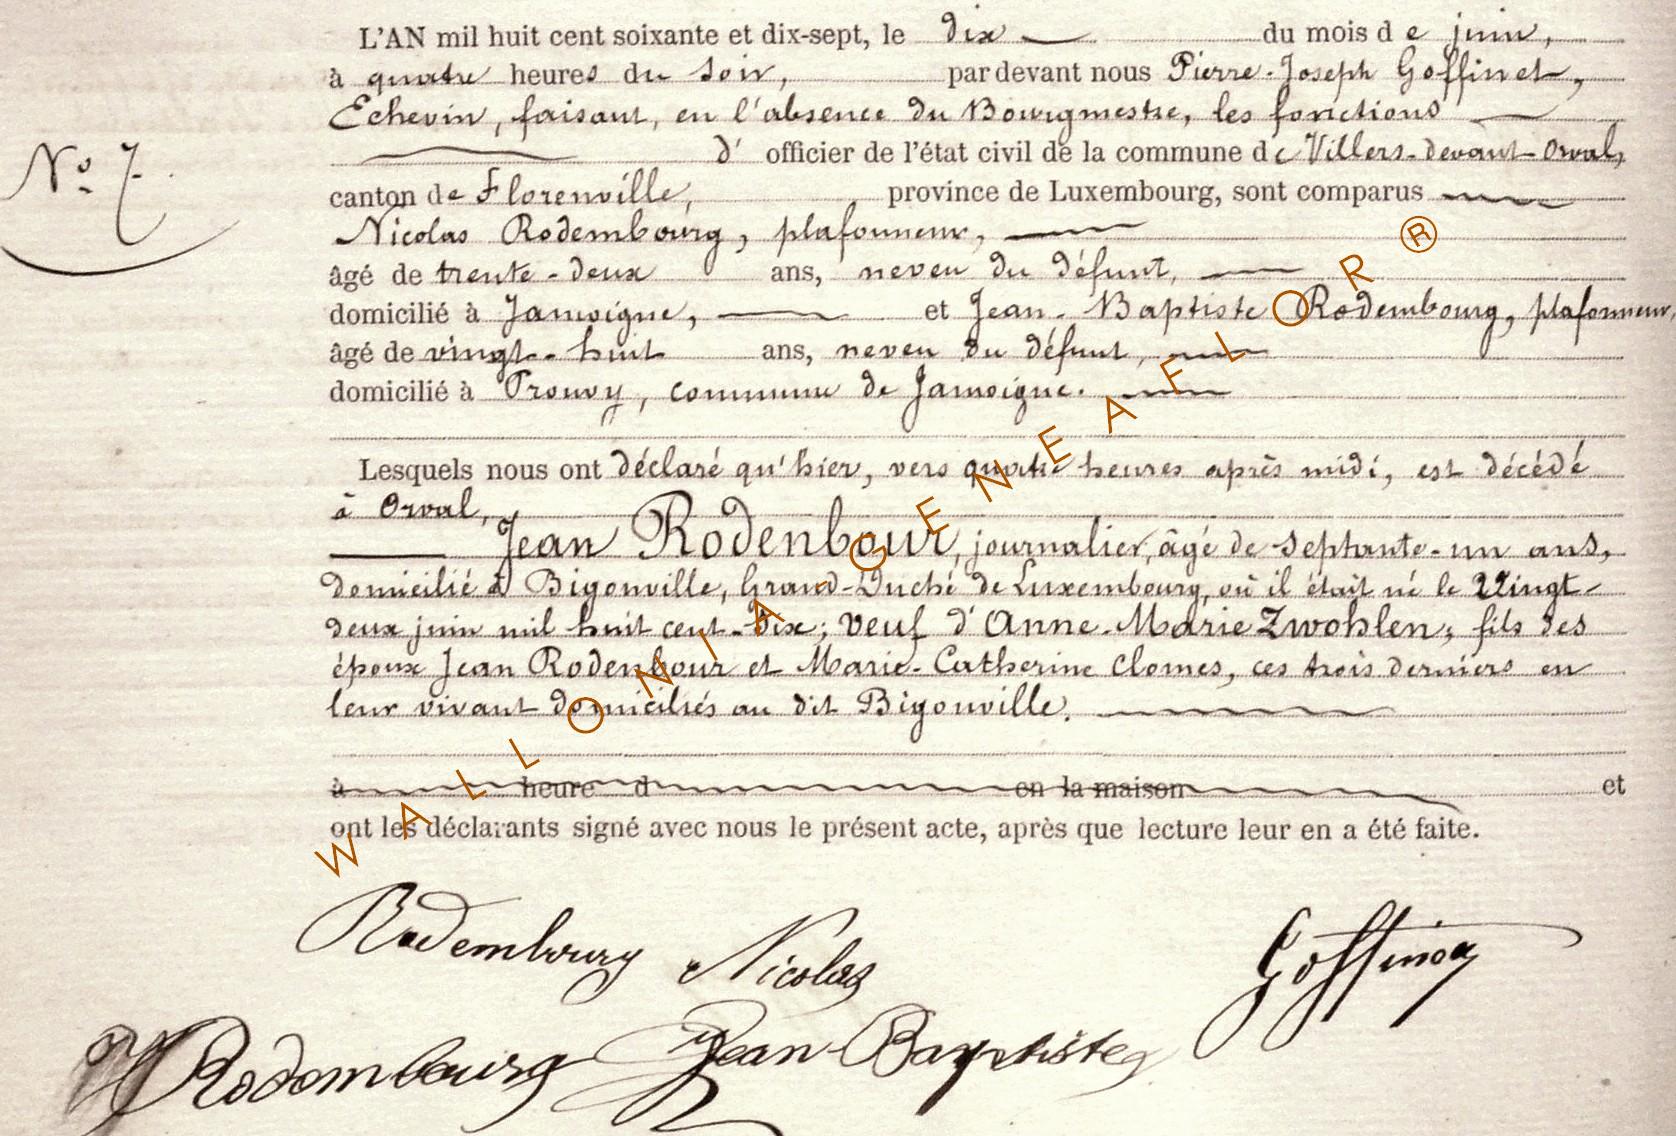 L'AN mil huit cent soixante et dix-sept, le dix du mois de juin,
à quatre heures du soir, par devant nous Pierre-Joseph Goffinet,
Echevin, faisant, en l'absence du Bourgmestre, les fonctions
N° 7.
d' officier de l'état civil de la commune de Villers-devant-Orval,
canton de Florenville, province de Luxembourg, sont comparus
Nicolas Rodembourg, plafonneur,
âgé de trente-deux ans, neveu du défunt,
domicilié à Jamoigne, et Jean-Baptiste Rodembourg, plafonneur,
âgé de vingt-huit ans, neveu du défunt,
domicilié à Prouvy, commune de Jamoigne.
Lesquels nous ont déclaré qu'hier, vers quatre heures après midi, est décédé
à Orval,
Jean Rodenbour, journalier, âgé de septante-un ans,
domicilié à Bigonville, Grand-Duché de Luxembourg, où il était né le Vingt-
deux juin mil huit cent-dix; veuf d'Anne-Marie Zwohlen; fils des
époux Jean Rodenbour et Marie-Catherine Clomes, ces trois derniers en
leur vivant domiciliés au dit Bigonville.
à heure d en la maison et
ont les déclarants signé avec nous le présent acte, après que lecture leur en a été faite.
Rodembourg Nicolas
Goffinet
Rodembourg Jean-Baptiste
WALLONIA-GENEAFLOR®